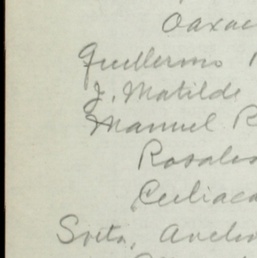 Oaxac
Guillermo
J. Matilde
Manuel R
Rosales
Culiaca
Srita. Avelin